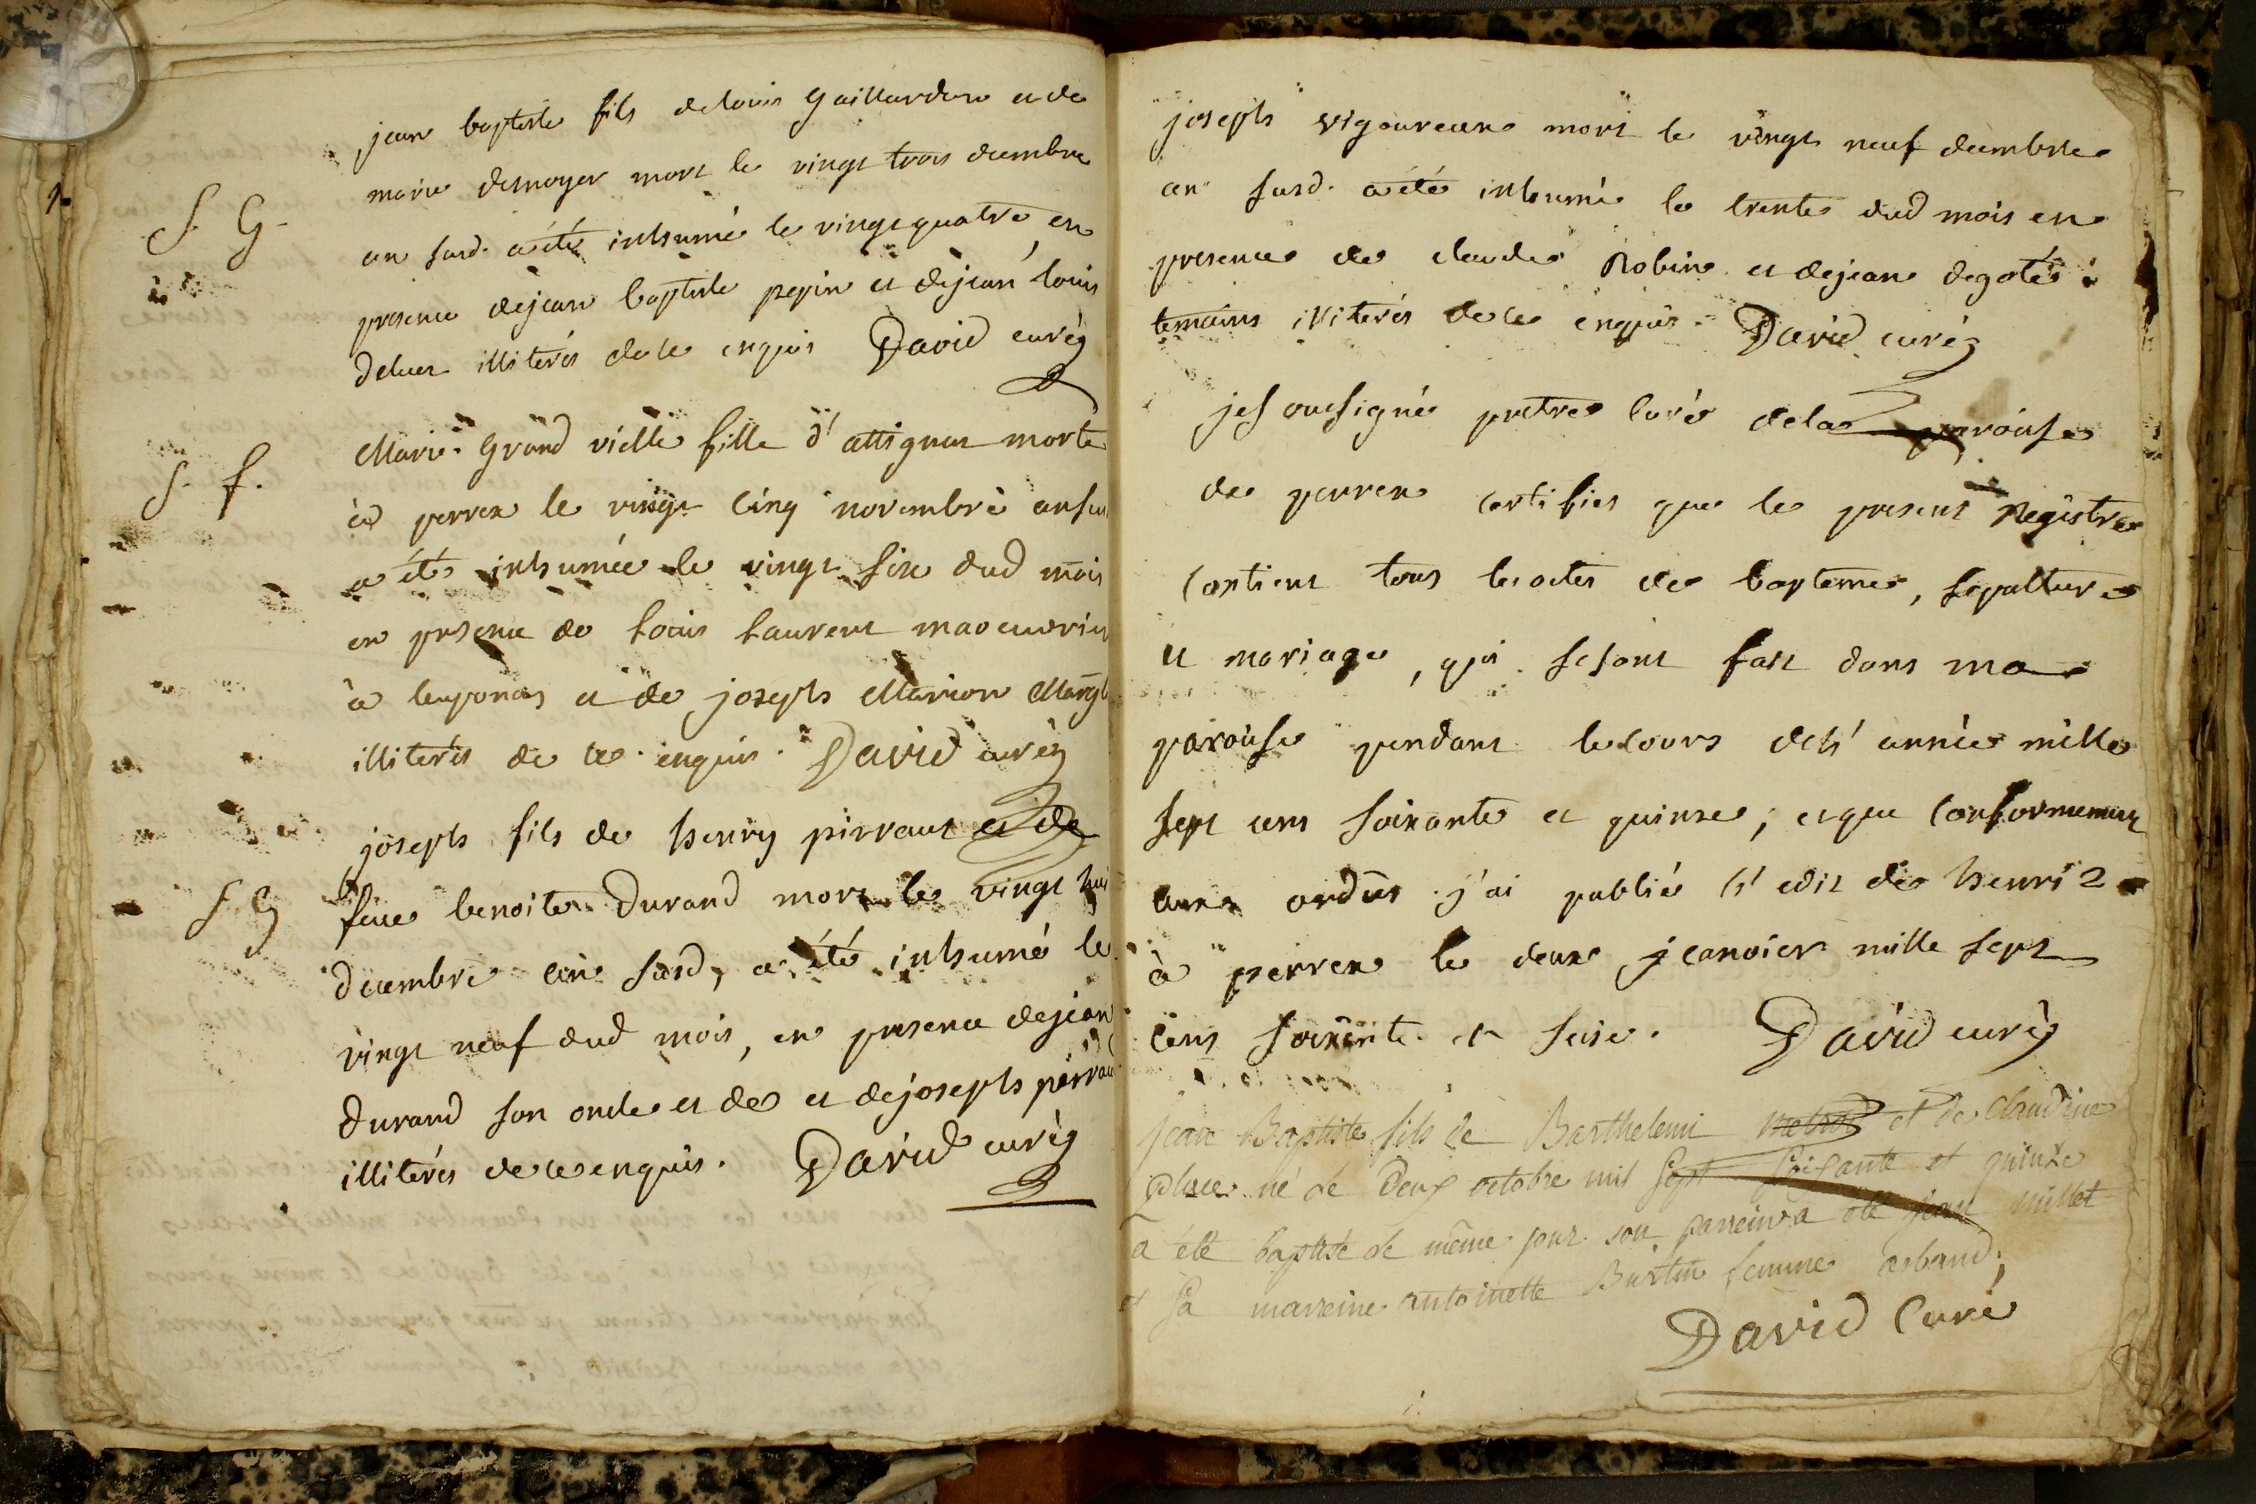 jean baptiste fils de louis gaillardon et de
marie desmoyer mort le vingt trois decembre
S. G.
an susd. a été inhumé le vingt quatre, en
presence de jean baptiste pepin et de jean louis
illiterés de ce enquis David curé
Marie grand vielle fille d'attignat morte
S. f.
à perrex le vingt cinq novembre an
a été inhumée le vingt six dud mois
en presence de Louis Laurent
à et de joseph Marion
illiterés de ce enquis. David curé
joseph fils de henry pirraut et de
S g
feue benoite Durand mort le vingt
decembre an susd, a été inhumé le
vingt neuf dud mois, en presence de jean
Durand son oncle et de et de joseph
illiterés de ce enquis. David curé
joseph vigoureux mort le vingt neuf decembre
an susd. a été inhumé le trente dud mois en
presence de claude Robin et de jean degotés
temoins illiterés de ce enquis. David curé
je sousigné pretre curé de la paroisse
de perrex certifies que le present Registre
contient tous les actes de bapteme, sepulture
et mariage, qui se sont fait dans ma
paroisse pendant le cours de l'année mille
sept cens soixante et quinse; et que conformement
aux ordres j'ai publié l'edit de henri 2
à perrex le deux jeanvier mille sept
cens soixante et seise. David curé
jean Baptiste fils de Barthelemi et de Claudine
place né le deux octobre mil sept soixante et quinze
a été baptisé le même jour son parrein a été jean millet
et sa marreine antoinette Burtin femme
David Curé